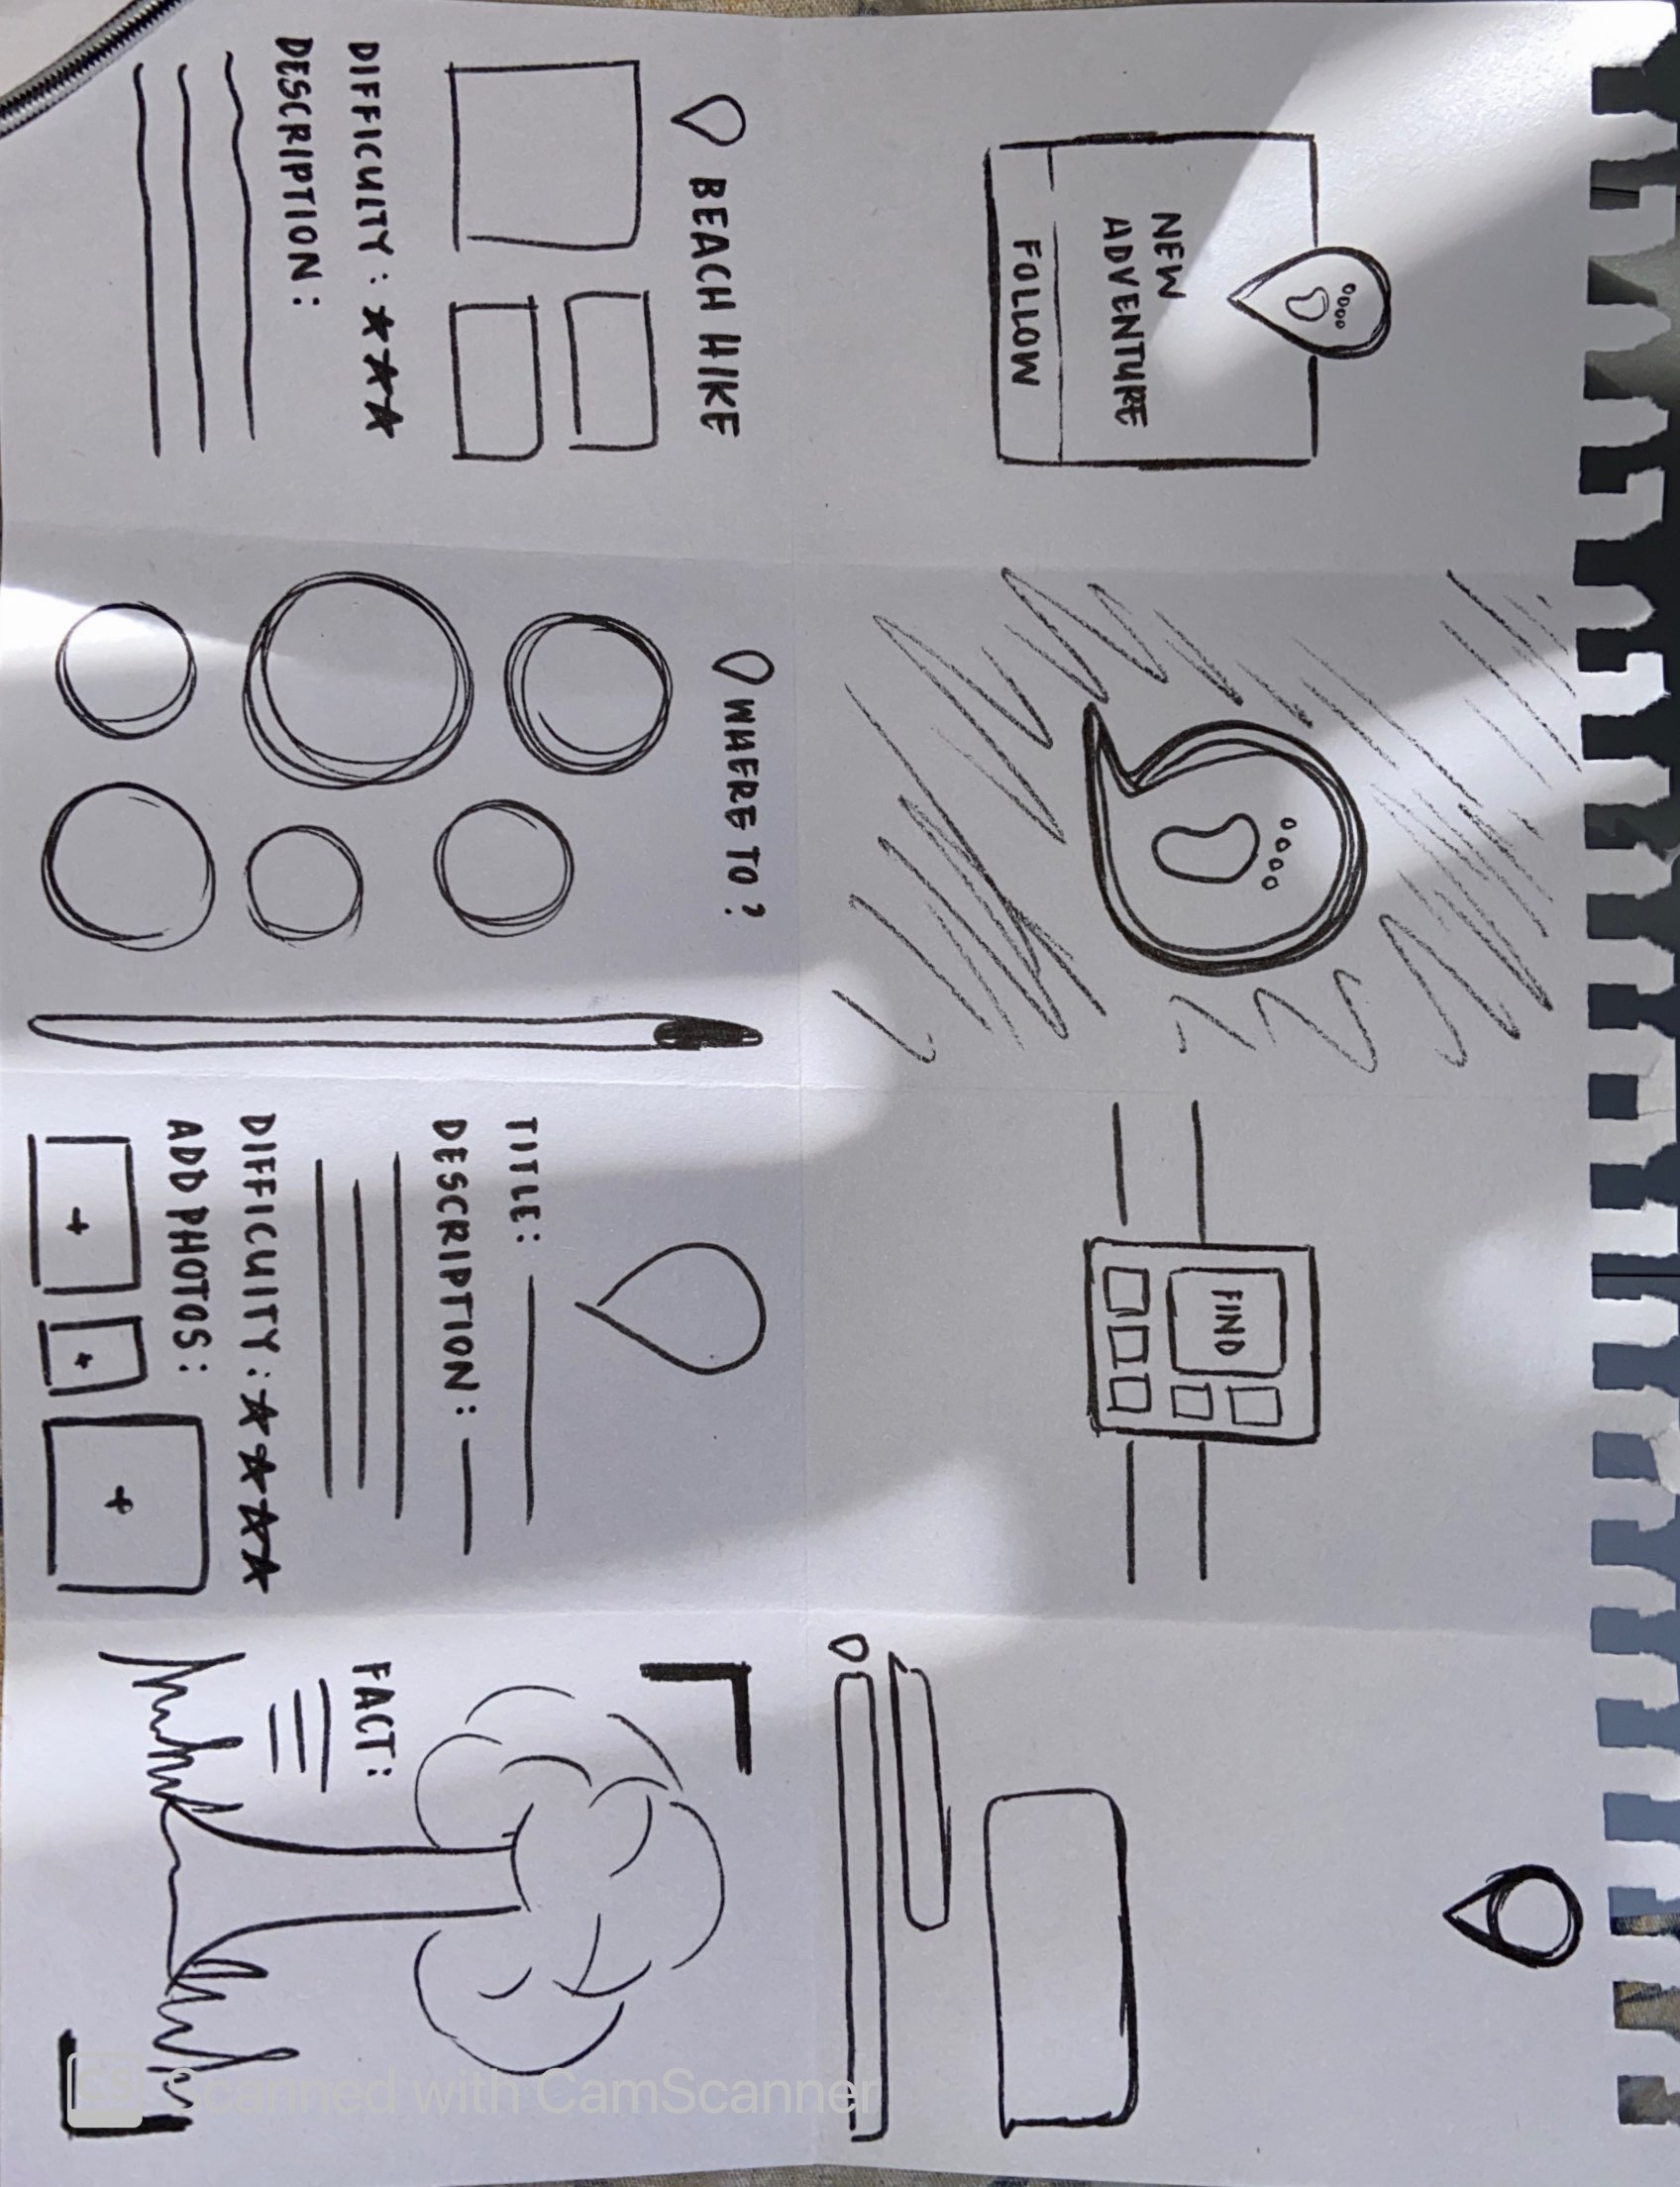 NEW
ADVENTURE
FOLLOW
FIND
BEACH HIKE
DIFFICULTY: ★★★
DESCRIPTION:
WHERE TO?
TITLE:
DESCRIPTION:
DIFFICULTY: ★★★★
ADD PHOTOS:
+
+
+
FACT:
CS Scanned with CamScanner